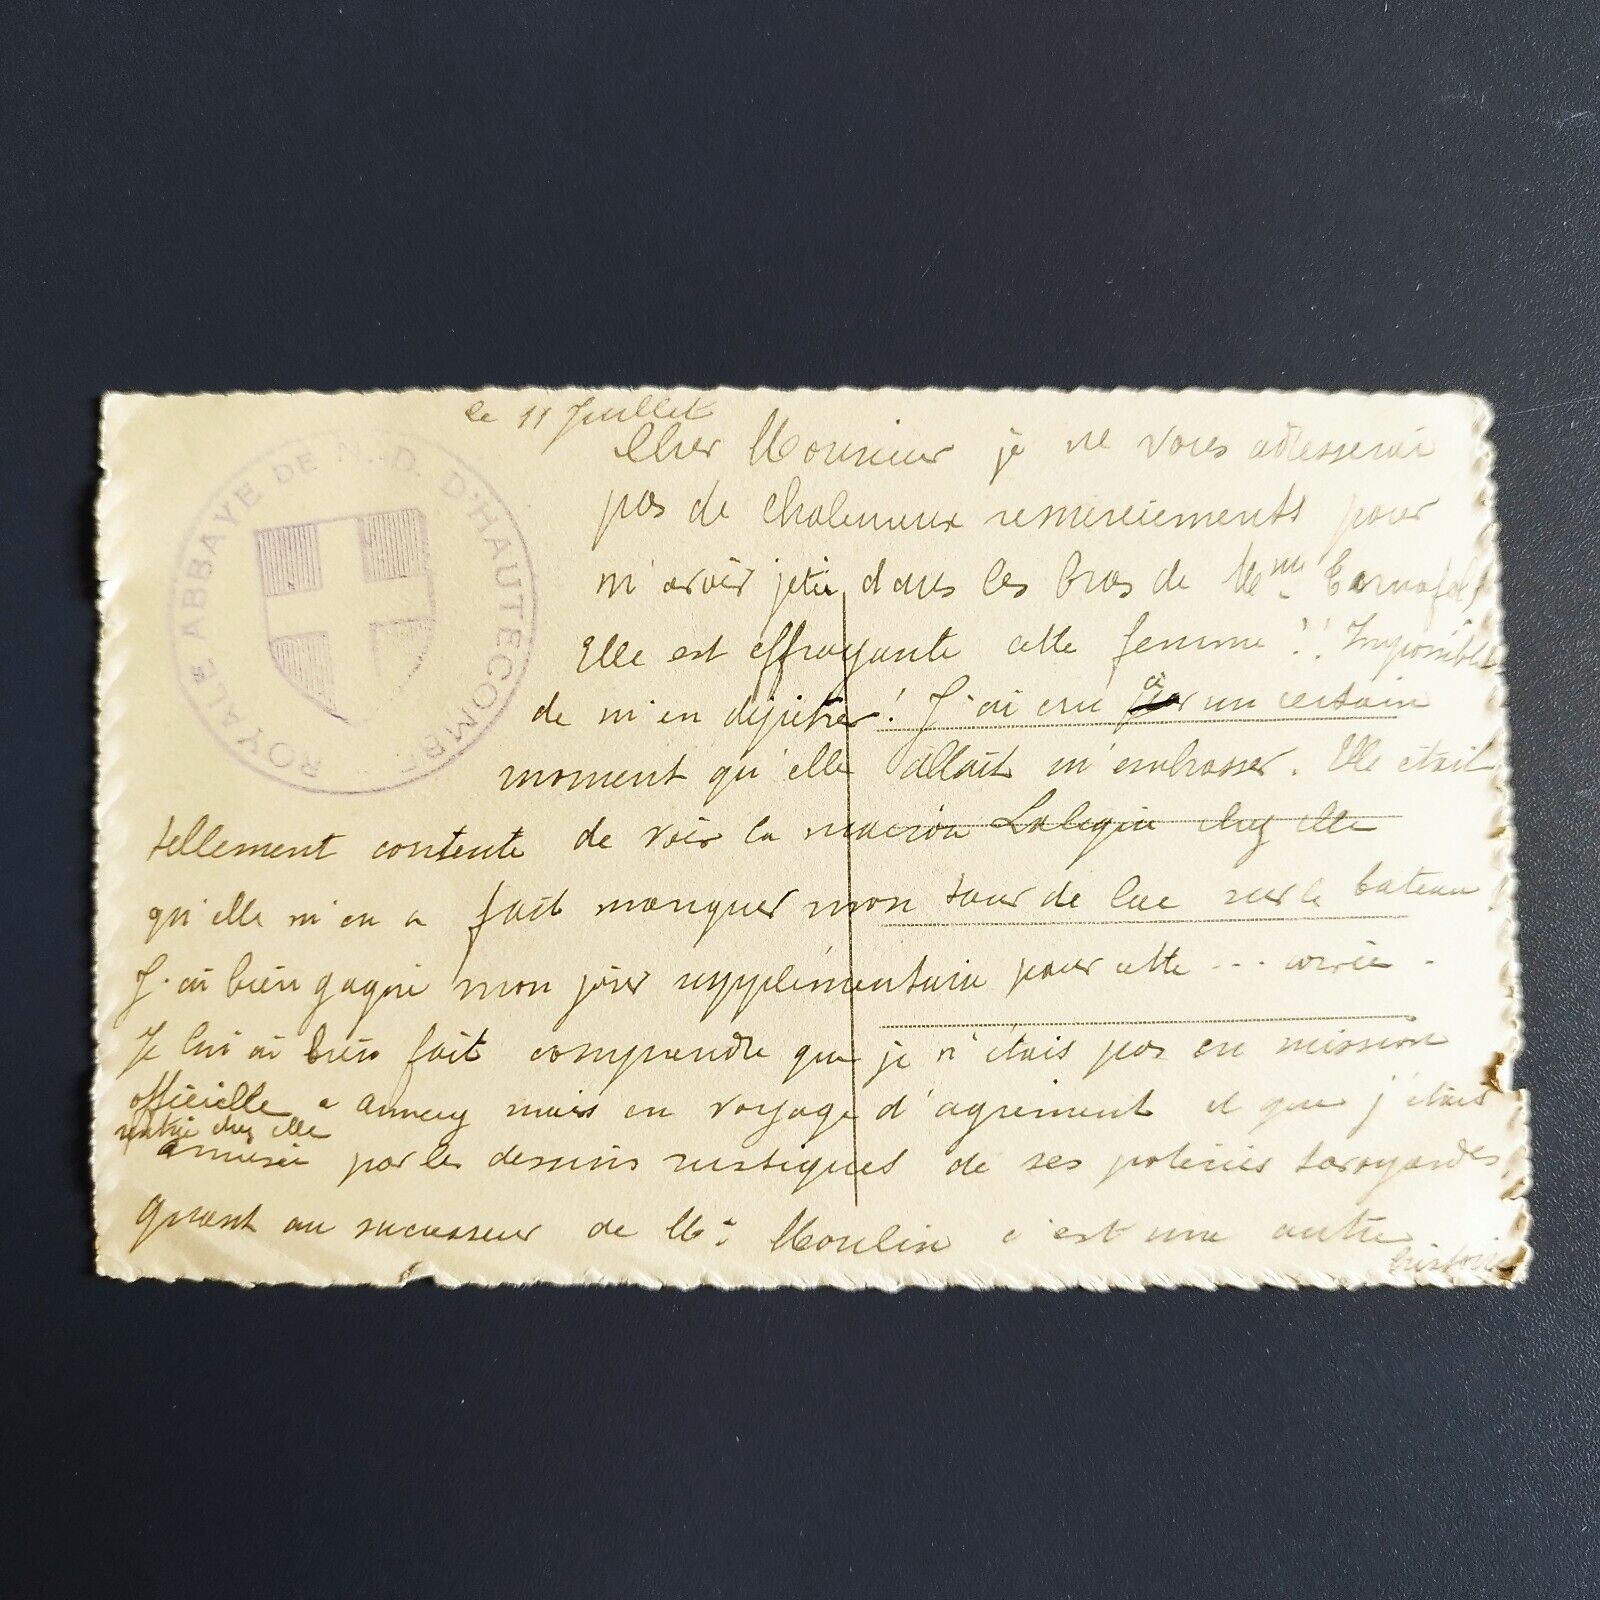 ROYALE ABBAYE DE N. D. D'HAUTECOMBE
le 11 Juillet
Cher Monsieur je ne vous adresserai
pas de chaleureux remerciements pour
m'avoir jetée dans les bras de Mme
Elle est effrayante cette femme!! Impossible
de m'en dépétrer! J'ai cru à un certain
moment qu'elle allait m'embrasser. Elle était
tellement contente de voir la maison chez elle
qu'elle m'en a fait manquer mon tour de lac sur le bateau!
J'ai bien gagné mon jour supplémentaire pour cette ... corvée.
Je lui ai bien fait comprendre que je n'étais pas en mission
officielle a annecy mais en voyage d'agrément et que j'étais
entrée chez elle
amusée par les dessins rustiques de ses poteries savoyardes
Quant au successeur de Mr Moulin c'est une autre
histoire